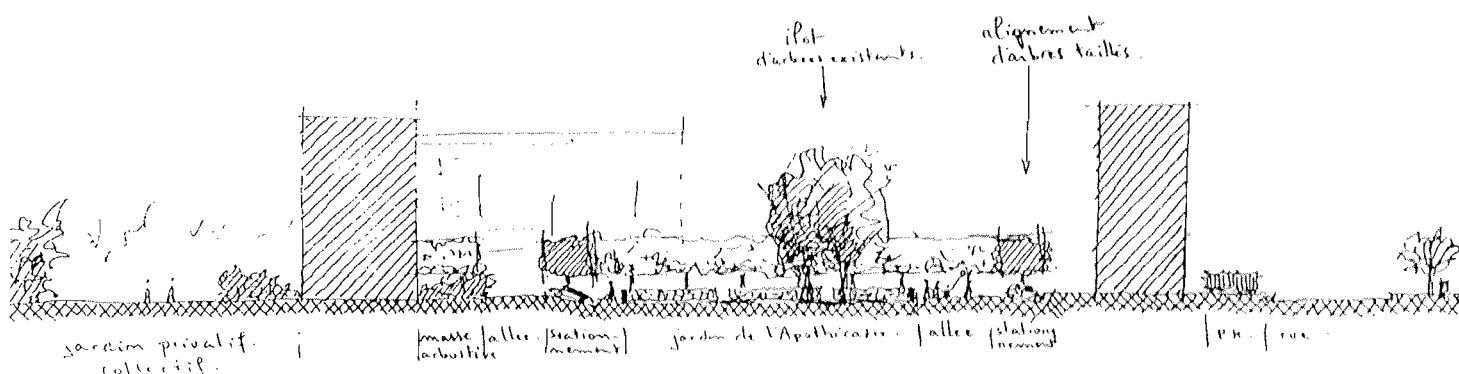 ilot
d'arbres existants.
alignement
d'arbres taillés.
jardin privatif.
collectif.
masse
arbustive
allee.
station-
nement
jardin de l'Apothicaire.
allee
station
nement
rue.